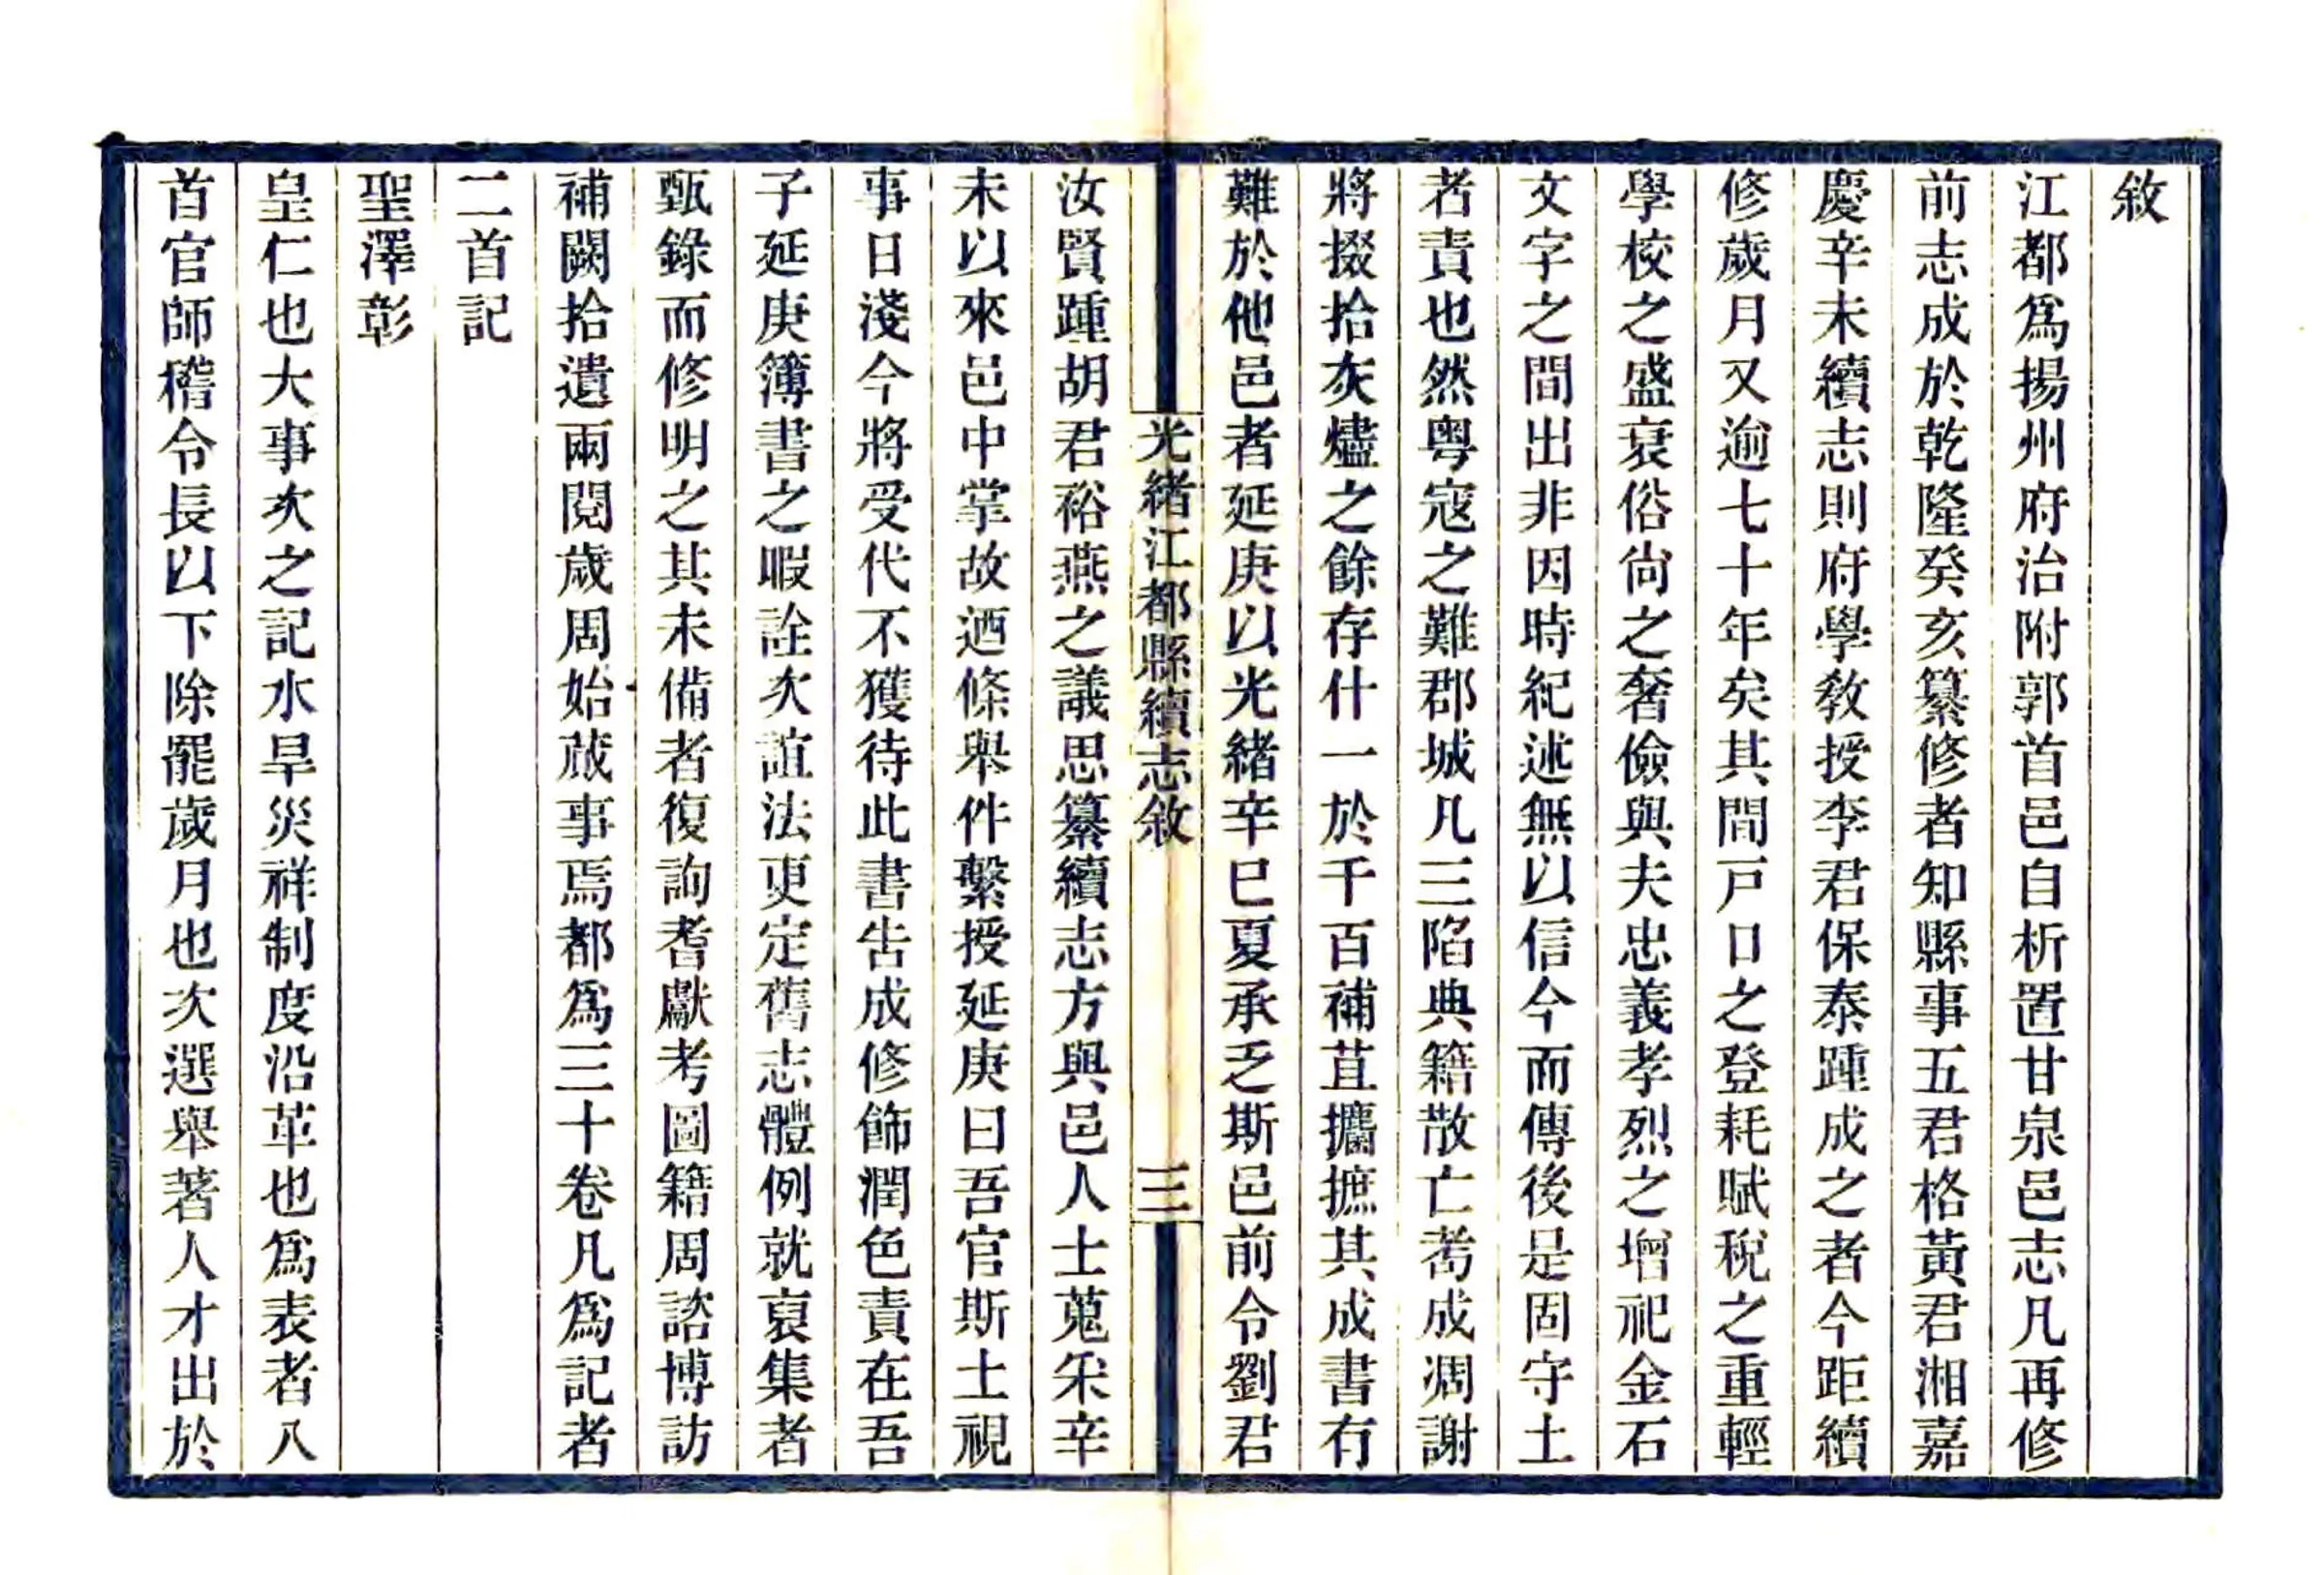 敘
江都爲揚州府治附郭首邑自析置甘泉邑志凡再修
前志成於乾隆癸亥纂修者知縣事五君格黃君湘嘉
慶辛未續志則府學敎授李君保泰踵成之者今距續
修歲月又逾七十年矣其間戸口之登耗賦稅之重輕
學校之盛衰俗尙之奢儉與夫忠義孝烈之增祀金石
文字之間出非因時紀述無以信今而傳後是固守土
者責也然粤寇之難郡城凡三陷典籍散亡耇成凋謝
將掇拾灰燼之餘存什一於千百補苴攟摭其成書冇
難於他邑者延庚以光緒辛巳夏承乏斯邑前令劉君
光緒江都縣續志敘 三
汝賢踵胡君裕燕之議思纂續志方與邑人士蒐采辛
未以來邑中掌故迺條舉件繫授延庚曰吾官斯土視
事日淺今將受代不獲待此書告成修飾潤色責在吾
子延庚簿書之暇詮次誼法更定舊志體例就裒集者
甄錄而修明之其未備者復詢耆獻考圖籍周諮博訪
補闕拾遺兩閱歲周始蕆事焉都爲三十卷凡爲記者
二首記
聖澤彰
皇仁也大事次之記水旱災祥制度沿革也爲表者八
首官師稽令長以下除罷歲月也次選舉著人才出於